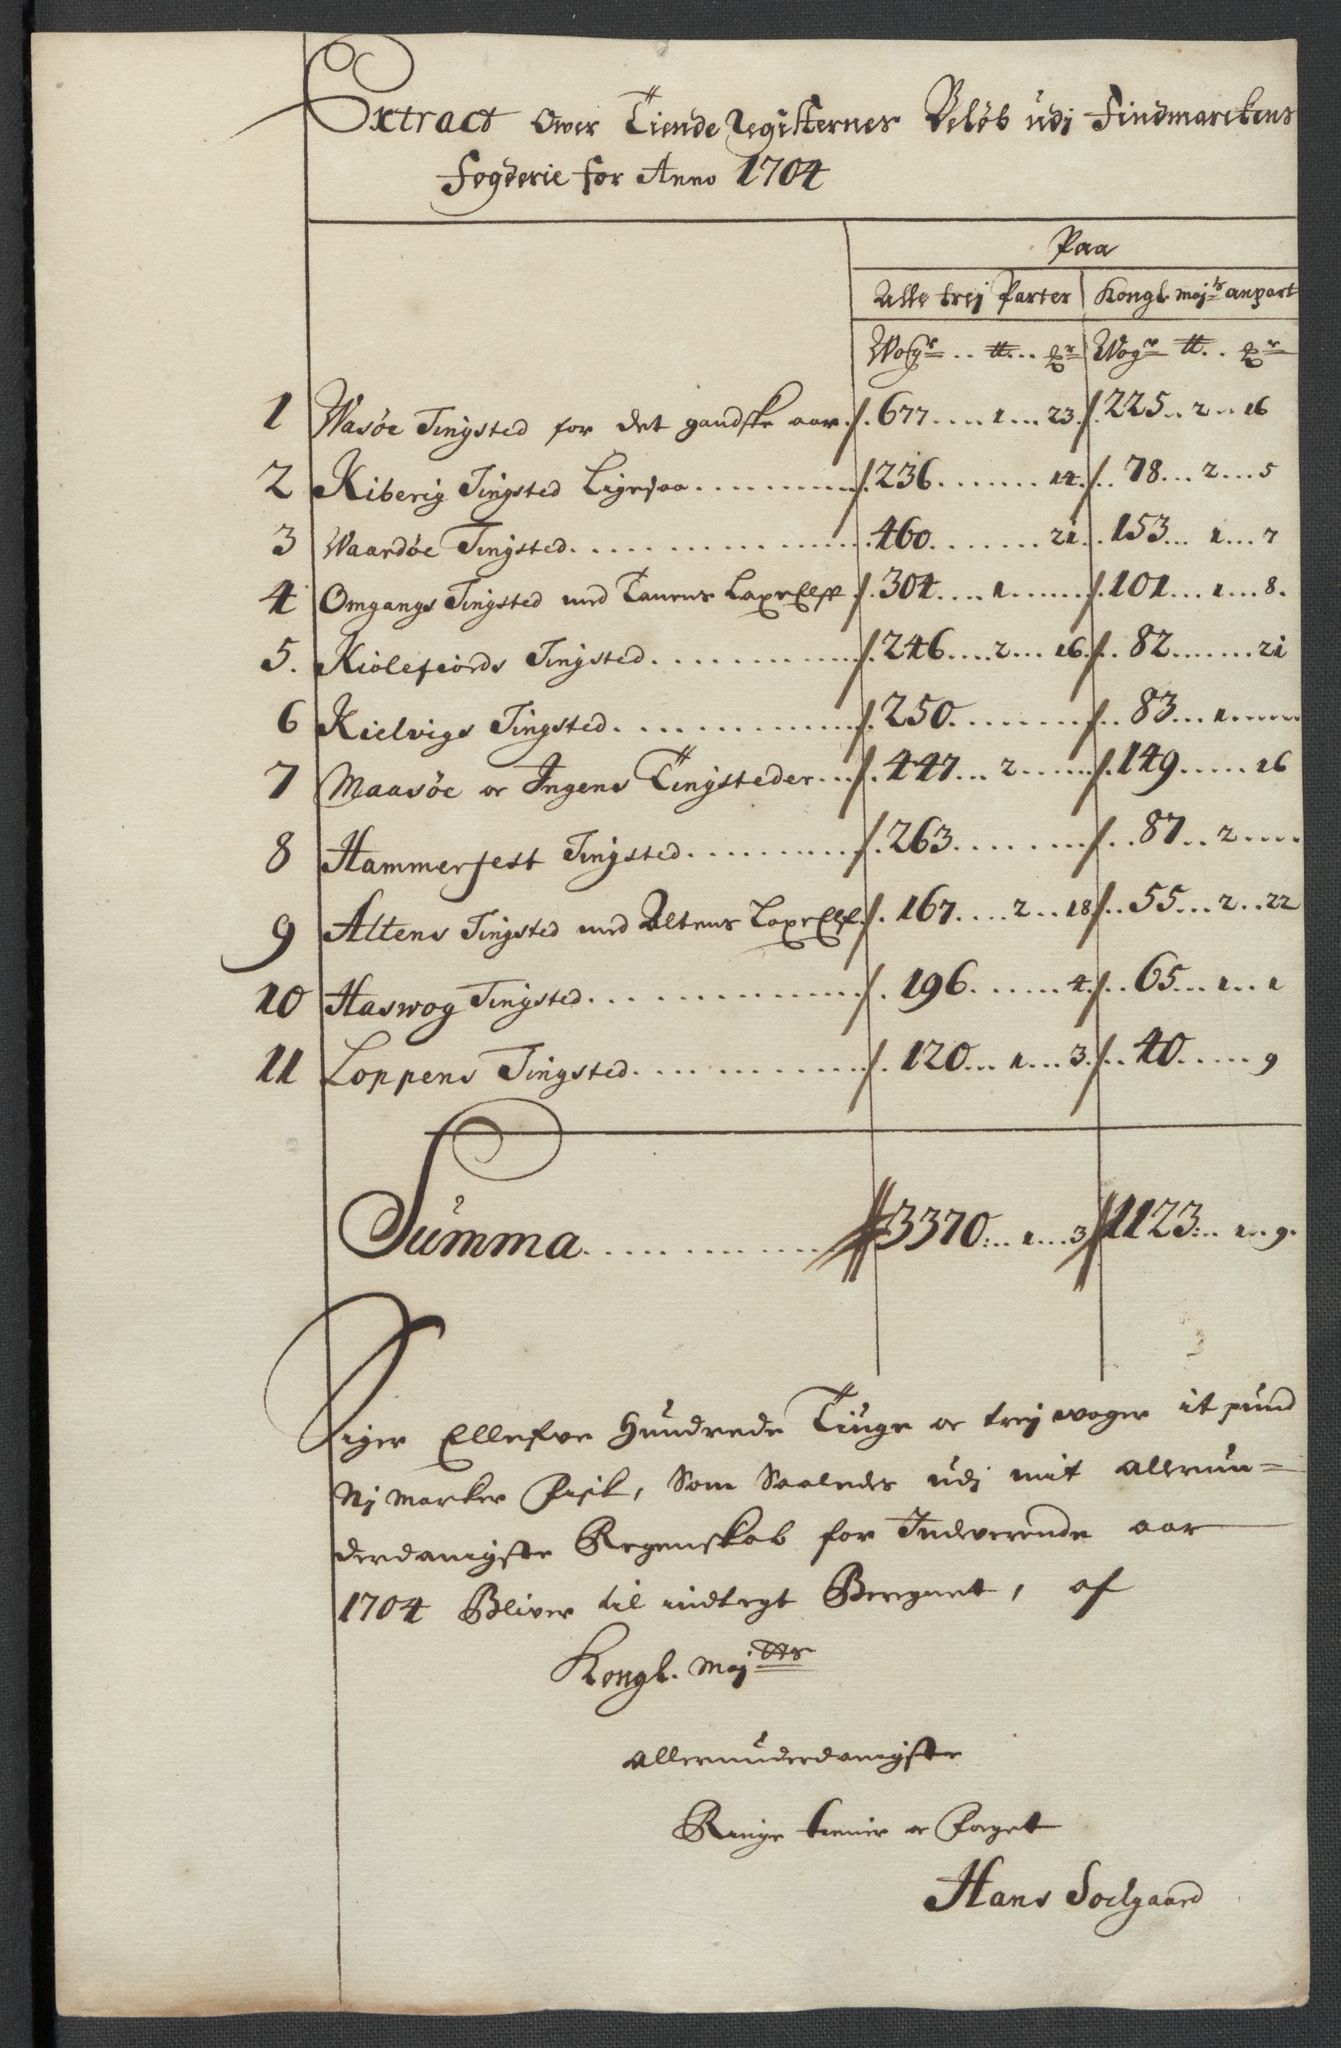 Extract Over Tiende Registernes Beløb udj Findmarckens
Fogderie for Anno 1704
Paa
Alle trej Parter Kongl. Maj:ts anpart
Wogr .. tt .. ₰r Wogr tt .. ₰r
1 Wasøe Tingsted for det gandske aar ./. 677 .... 1 ... 23 ./. 225 .. 2 .. 16
2 Kiberig Tingsted Ligesaa ......... ./. 236 ....... 14 ./. 78 ... 2 ... 5
3 Waardøe Tingsted ............... 460 ........ 21 .. 153 ... 1 ... 7
4 Omgangs Tingsted med Tanens LaxeElff ./. 304 .... 1 ...... ./. 101 ... 1 ... 8.
5. Kiølefiords Tingsted ............ ./. 246 .... 2 ... 16 ./. 82 ....... 21
6 Kielvigs Tingsted .............. ./. 250 .......... ./. 83 ... 1 ......
7 Maasøe oc Ingens Tingsteder ... ./. 447 ... 2 ...... ./. 149 ...... 16
8 Hammerfest Tingsted .......... ./. 263 .......... ./. 87 .. 2 ....
9 Altens Tingsted med Altens LaxeElf ./. 167 .... 2 ... 18 ./. 55 ... 2 .. 22
10 Haswog Tingsted ............... ./. 196 ....... 4 ./. 65 ... 1 ... 1
11 Loppens Tingsted .............. ./. 120 ... 1 ... 3 ./. 40 ...... 9
Summa ............ 3370 ... 1 ... 3 1123 ... 1 .. 9.
Siger Ellefve Hundrede Tiuge oc trej woger it pund
Nj marker Fisk, Som Saaledes udj mit allerun=
derdanigste Regenskab for Indeverende aar
1704 Bliver til indtegt Beregnet, af
Kongl. Maj:tts
allerunderdanigste
Ringe tienir oc Foget
Hans Soelgaard